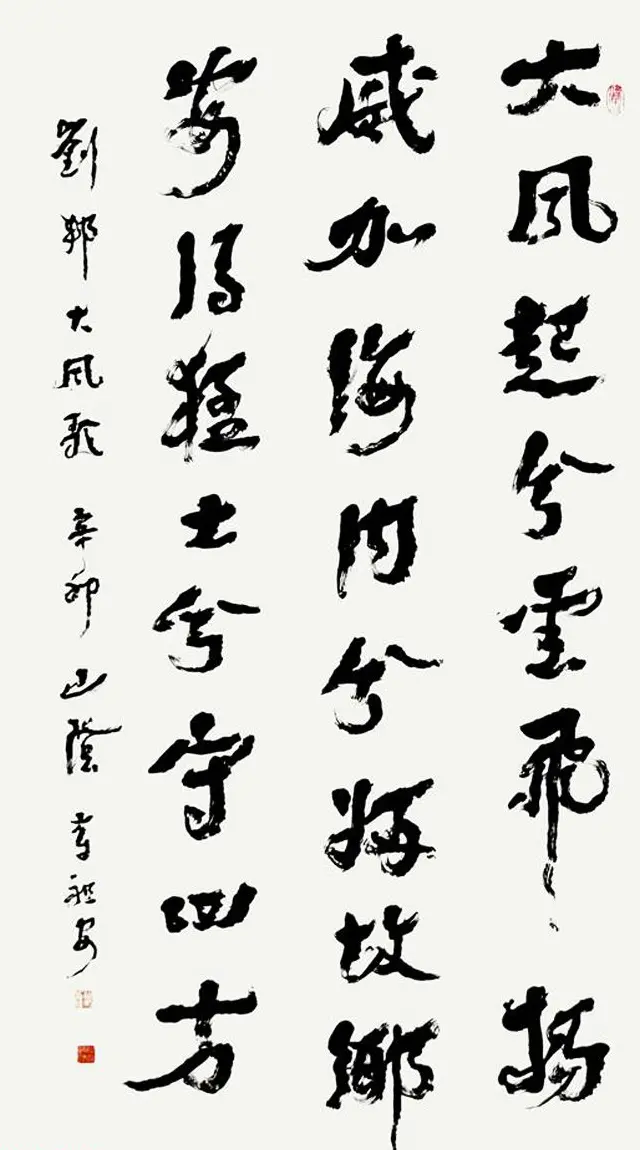 大風起兮雲飛揚
威加海内兮歸故鄉
安得猛士兮守四方
劉邦大風歌 辛卯 山陰 安